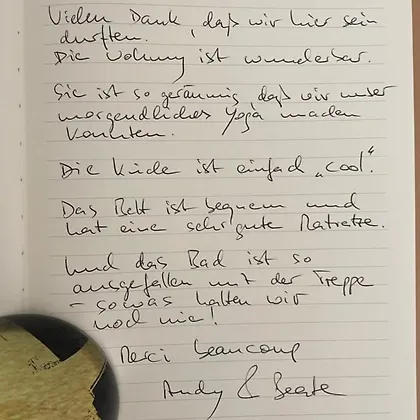 Vielen Dank, daß wir hier sein
durften.
Die Wohnung ist wunderbar.
Sie ist so geräumig, daß wir unser
morgendliches Yoga machen
konnten.
Die Küche ist einfach „cool“.
Das Bett ist bequem und
hat eine sehr gute Matratze.
Und das Bad ist so
ausgefallen mit der Treppe
- sowas hatten wir
noch nie!
Merci beaucoup
Andy & Beate